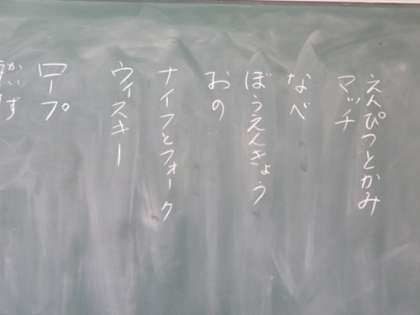 えんぴつとかみ
マッチ
なべ
ぼうえんきょう
おの
ナイフとフォーク
ウィスキー
ロープ